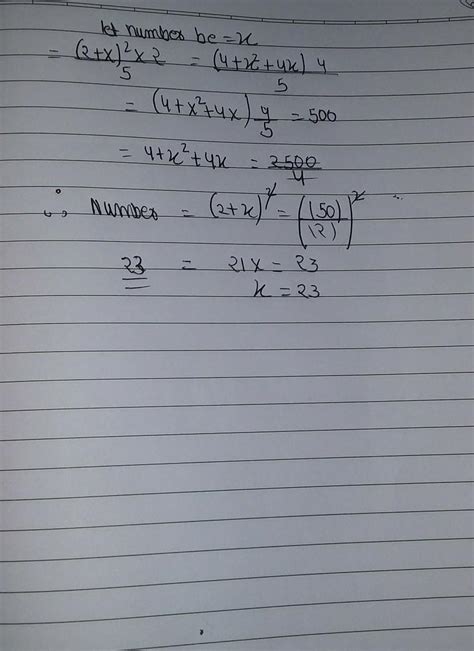 let number be = x
= (2+x)²x2/5 = (4+x²+4x) 4/5
= (4+x²+4x) 4/5 = 500
= 4+x²+4x = 2500/4
∴, Number = (2+x)² = (150/12)²
23 = 21x = 23
x = 23